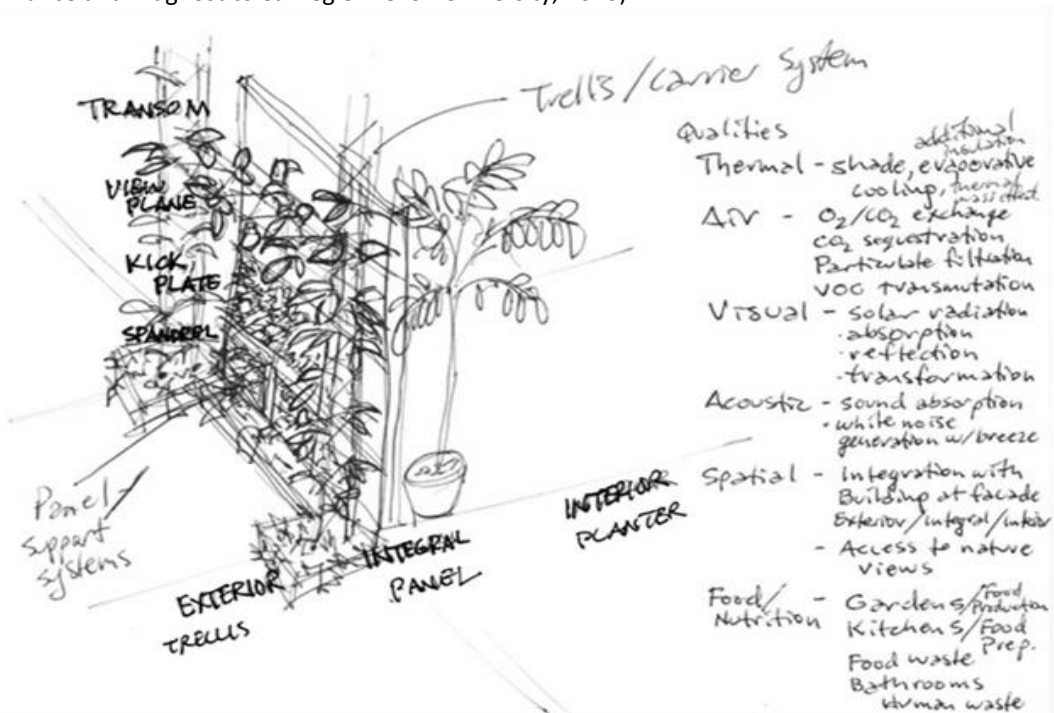 TRANSOM
VIEW
PLANE
KICK
PLATE
SPANDREL
Trellis/Carrier System
Panel
support
systems
EXTERIOR
TRELLIS
INTEGRAL
PANEL
INTERIOR
PLANTER
Qualities
additional
insulation
Thermal - shade, evaporative
cooling, thermal
mass effect
Air - O2/CO2 exchange
CO2 sequestration
Particulate filtration
VOC transmutation
Visual - solar radiation
·absorption
·reflection
·transformation
Acoustic - sound absorption
·white noise
generation w/breeze
Spatial - Integration with
Building at facade
Exterior/integral/interior
- Access to nature
views
Food/ - Gardens/Food
Nutrition Production
Kitchens/Food
Prep.
Food waste
Bathrooms
Human waste